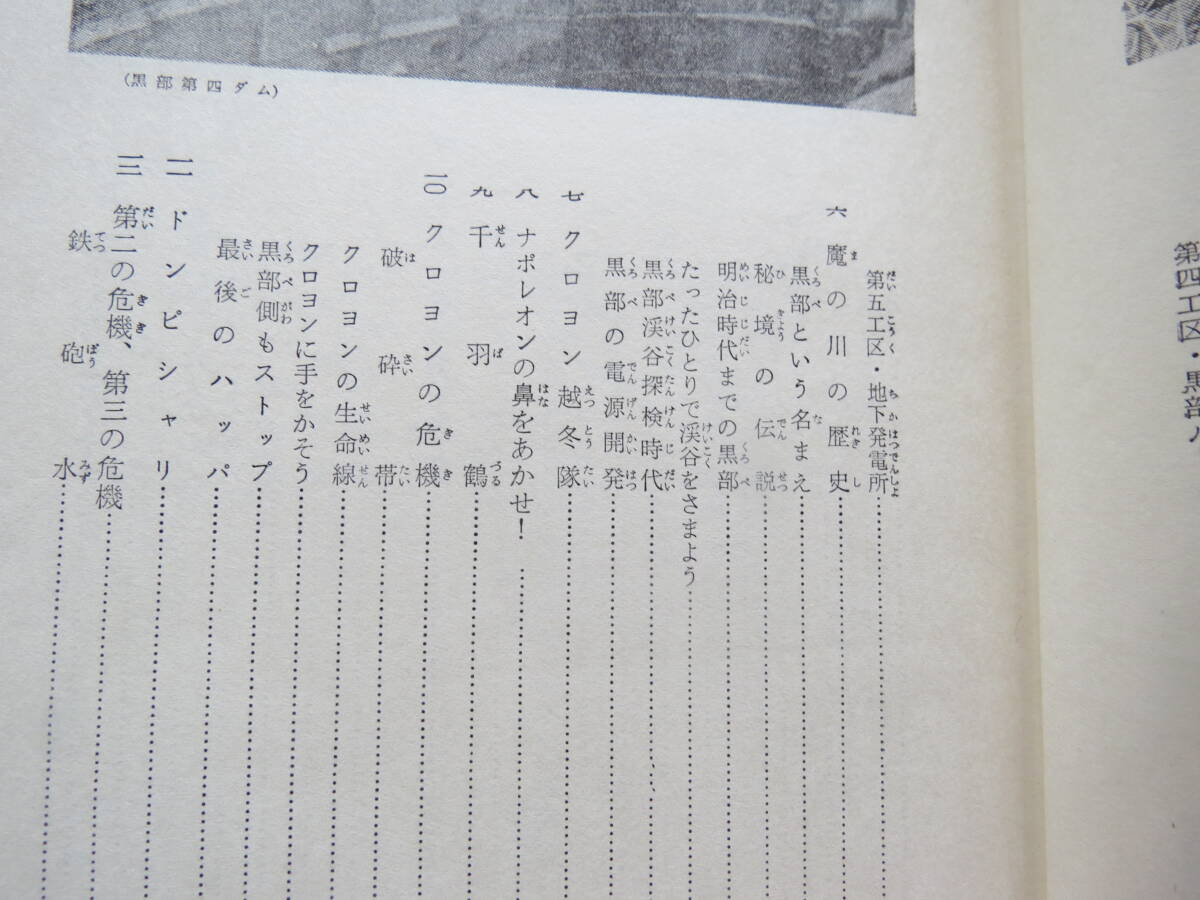 第四工区・黒部
(黒部第四ダム)
第五工区・地下発電所
六 魔の川の歴史
黒部という名まえ
秘境の伝説
明治時代までの黒部
たったひとりで渓谷をさまよう
黒部渓谷探検時代
黒部の電源開発
七 クロヨン越冬隊
八 ナポレオンの鼻をあかせ！
九 千羽鶴
一〇 クロヨンの危機
破砕帯
クロヨンの生命線
クロヨンに手をかそう
黒部側もストップ
最後のハッパ
一一 ドンピシャリ
一二 第二の危機、第三の危機
鉄砲水